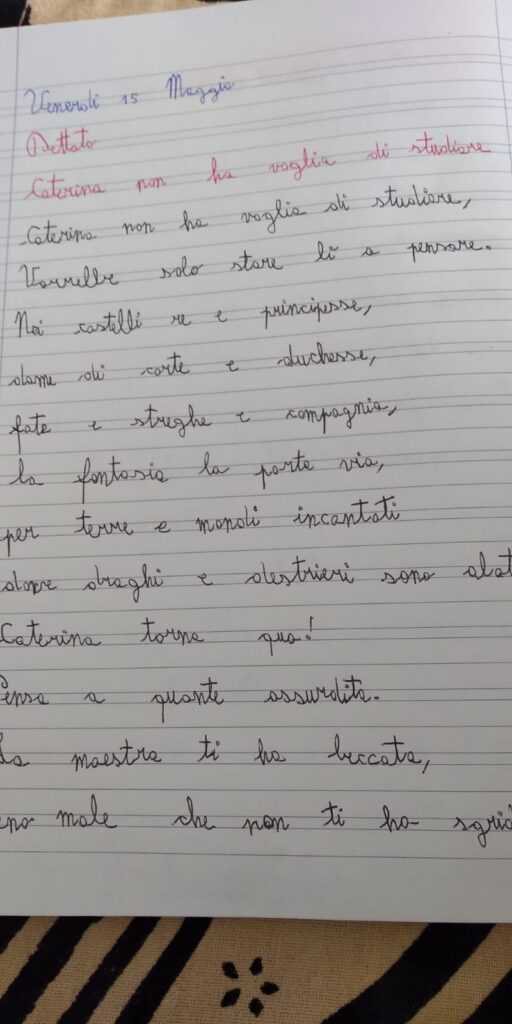 Venerdì 15 Maggio
Dettato
Caterina non ha voglia di studiare
Caterina non ha voglia di studiare,
Vorrebbe solo stare lì a pensare.
Nei castelli re e principesse,
dame di corte e duchesse,
fate e streghe e compagnia,
la fantasia la porta via,
per terre e mondi incantati
dove draghi e destrieri sono alat
Caterina torna qua!
Pensa a quante assurdità.
La maestra ti ha beccata,
eno male che non ti ha sgrid